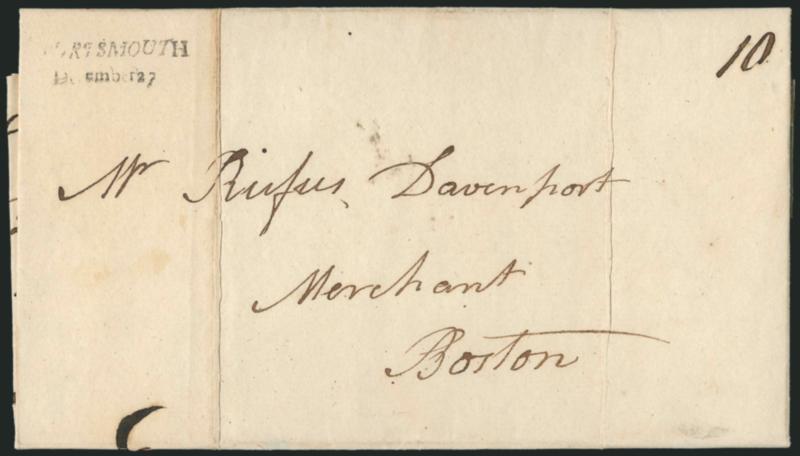 PORTSMOUTH
December 27
10
Mr Rufus Davenport
Merchant
Boston